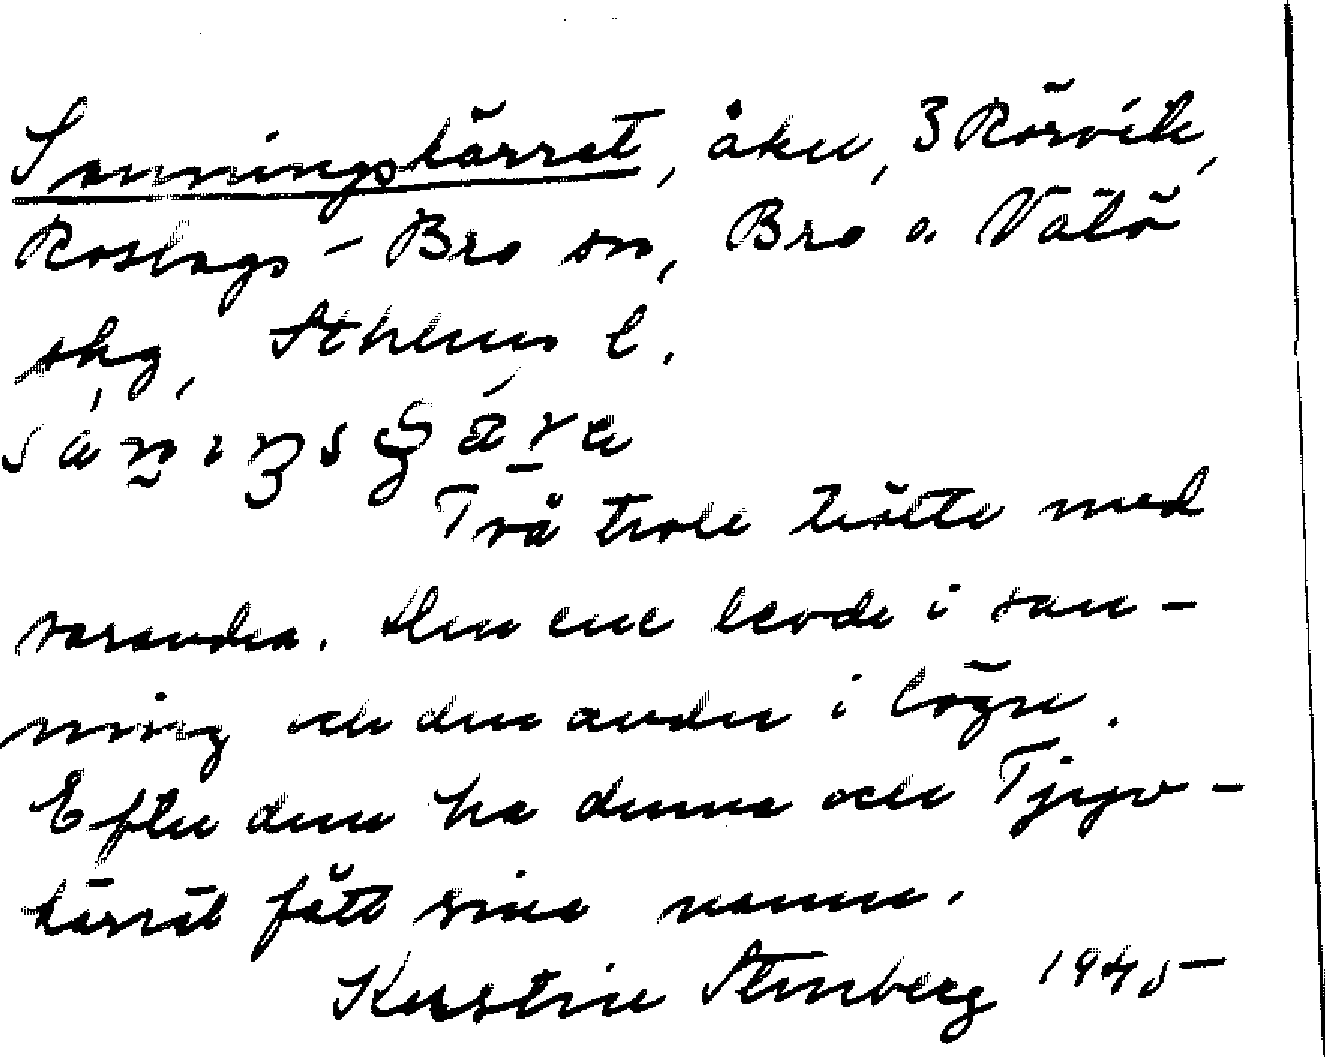 Sanningskärret, åker, 3 Rörvik,
Roslags-Bro sn, Bro o. Vätö
skg, Sthlms l.
Två troll trätte med
varandra. Den ene levde i san-
ning och den andre i lögn.
Efter dem ha denna och Tjyv-
kärret fått sina namn.
Kerstin Stenberg 1945